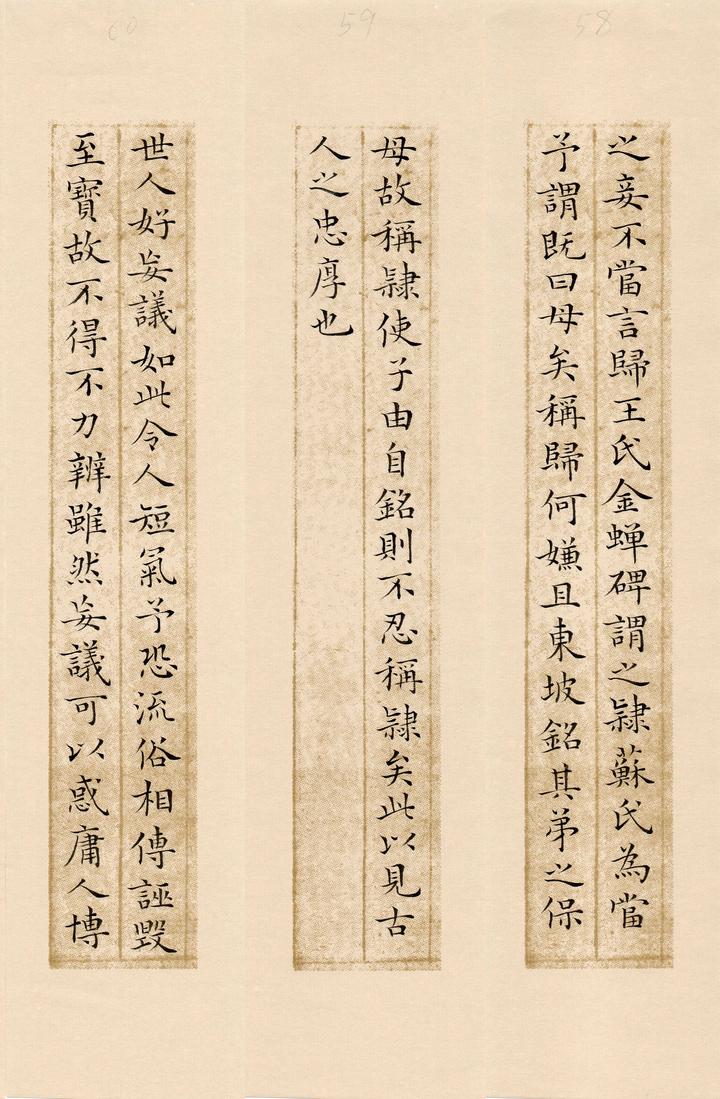 58
之妾不當言歸王氏金蟬碑謂之隸蘇氏為當
予謂既曰母矣稱歸何嫌且東坡銘其弟之保
59
母故稱隸使子由自銘則不忍稱隸矣此以見古
人之忠厚也
60
世人好妄議如此令人短氣予恐流俗相傳誣毀
至寶故不得不力辨雖然妄議可以惑庸人博